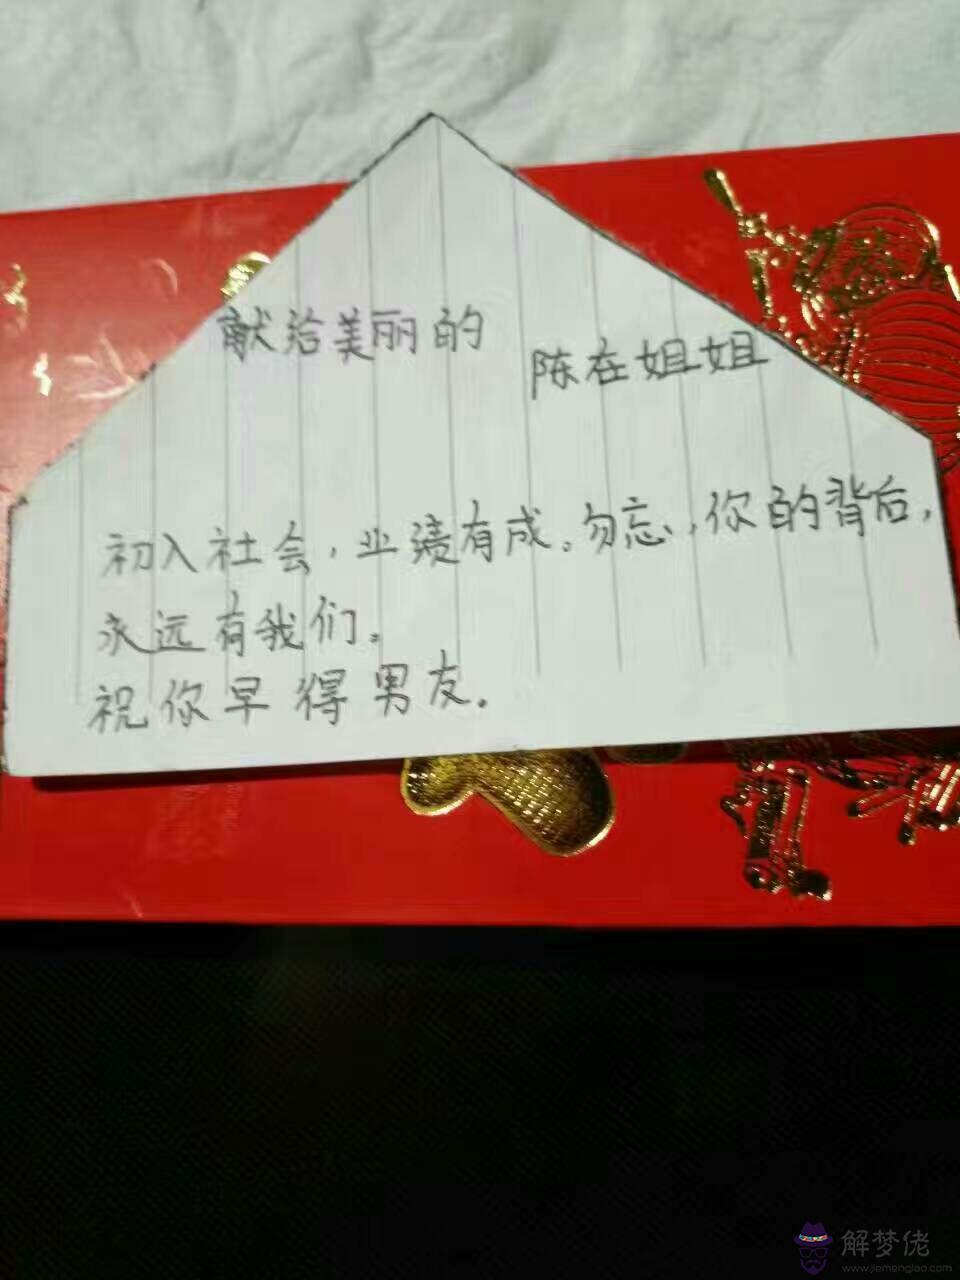 献给美丽的
陈在姐姐
初入社会，业绩有成。勿忘，你的背后，
永远有我们。
祝你早得男友。
解梦佬
www.jiemenglao.com